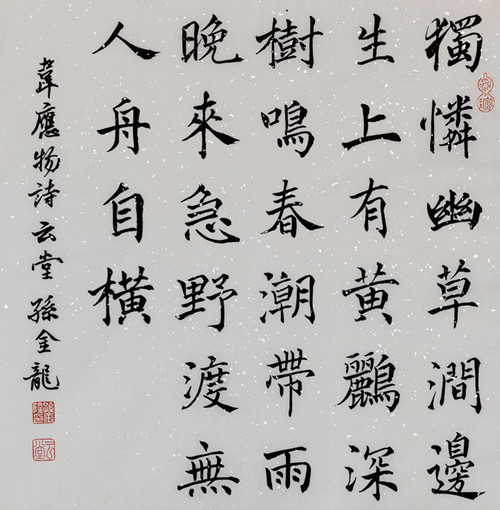 獨憐幽草澗邊
生上有黃鸝深
樹鳴春潮帶雨
晚來急野渡無
人舟自橫
韋應物詩云堂孫金龍